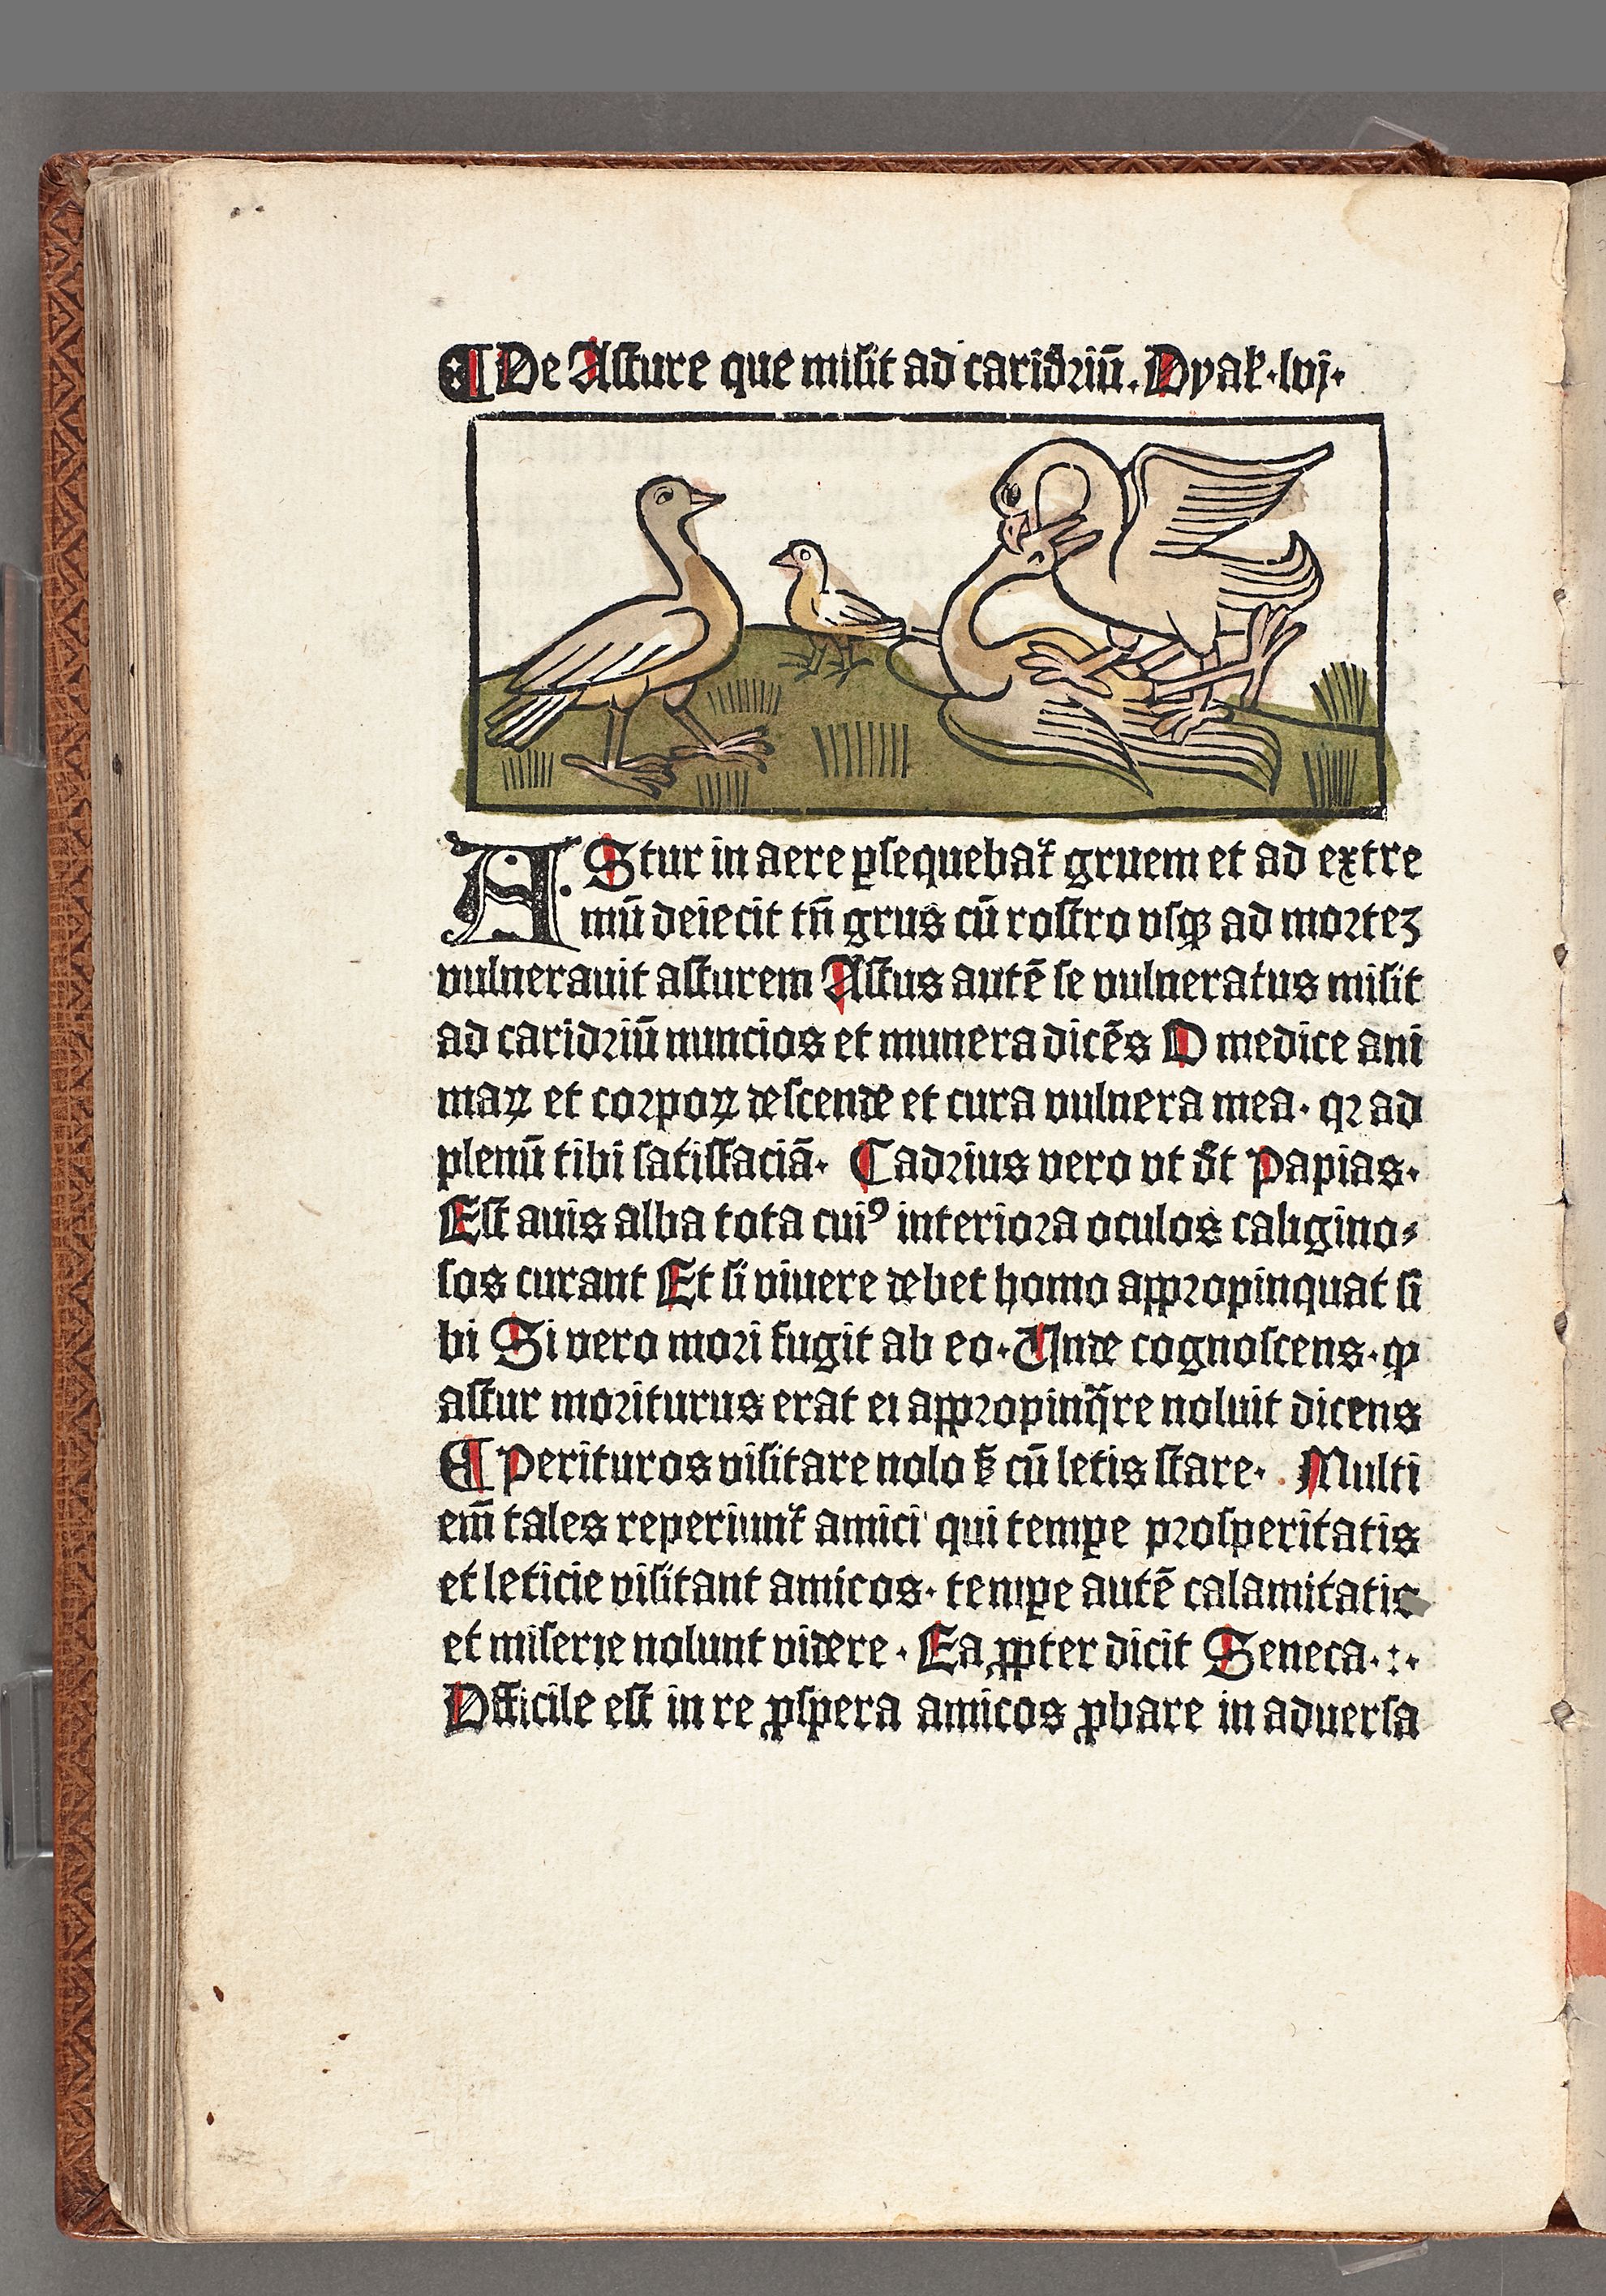 ¶ De Asture que misit ad caridriū. Dyal̄·lvj·
AStur in aere ꝑsequebat᷑ gruem et ad extre
mū deiecit tn̄ grus cū rostro vsqꝫ ad morteꝫ
vulnerauit asturem Astus autē se vulneratus misit
ad caridriū nuncios et munera dicēs O medice ani
maꝝ et corpoꝝ descende et cura vulnera mea· qꝛ ad
plenū tibi satisfaciā· Cadrius vero vt dt̄ Papias·
Est auis alba tota cuiꝰ interiora oculos caligino⸗
sos curant Et si viuere debet homo appropinquat si
bi Si vero mori fugit ab eo· Unde cognoscens· ꝙ
astur moriturus erat ei appropinq̄re noluit dicens
¶ Perituros visitare nolo sꝫ cū letis stare· Multi
em̄ tales reperiunt᷑ amici qui tempꝑe prosperitatis
et leticie visitant amicos· tempꝑe autē calamitatis
et miserie nolunt videre· Ea ꝓpter dicit Seneca·:·
Difficile est in re ꝓspera amicos ꝓbare in aduersa